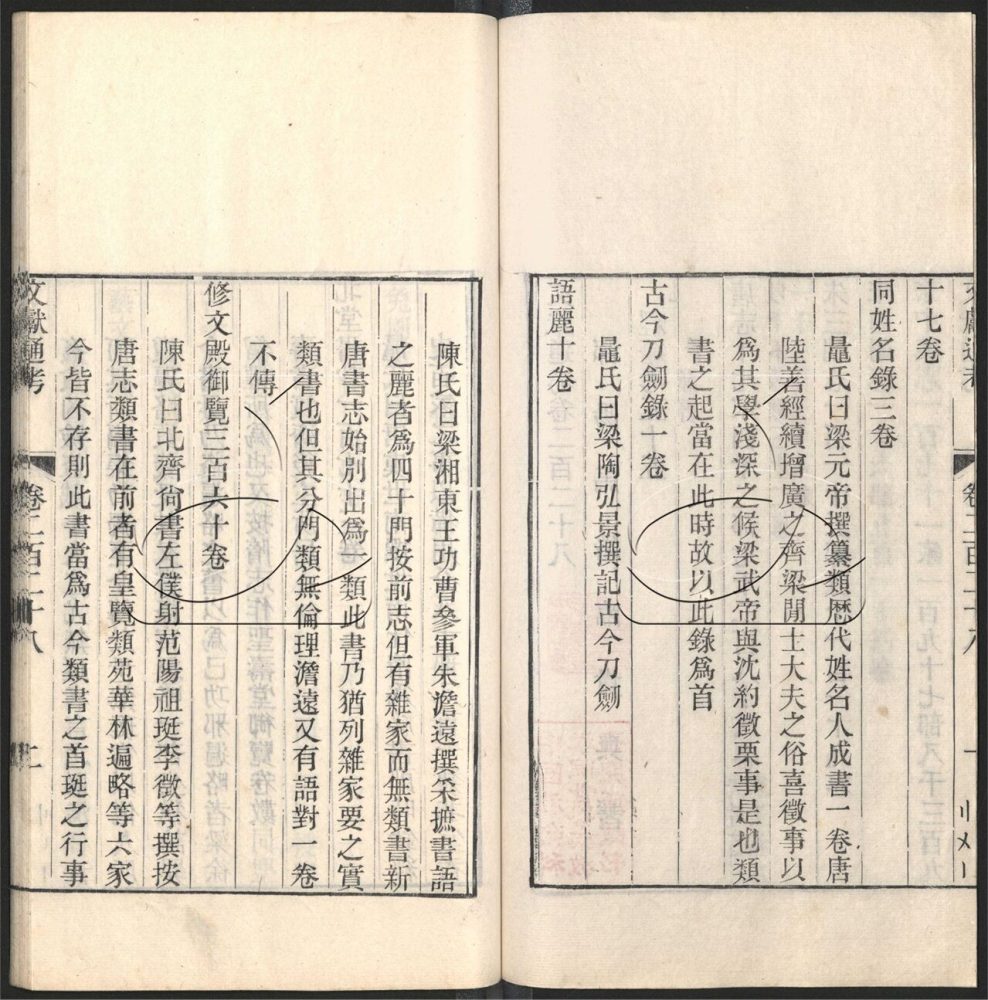 十七卷
同姓名錄三卷
鼂氏曰梁元帝撰纂類歴代姓名人成書一卷唐
陸善經續增廣之齊梁閒士大夫之俗喜徵事以
爲其學淺深之候梁武帝與沈約徵栗事是也類
書之起當在此時故以此錄爲首
古今刀劒錄一卷
鼂氏曰梁陶弘景撰記古今刀劒
語麗十卷
陳氏曰梁湘東王功曹參軍朱澹遠撰采摭書語
之麗者爲四十門按前志但有雜家而無類書新
唐書志始別出爲一類此書乃猶列雜家要之實
類書也但其分門類無倫理澹遠又有語對一卷
不傳
修文殿御覽三百六十卷
陳氏曰北齊尙書左僕射范陽祖珽李徵等撰按
唐志類書在前者有皇覽類苑華林遍略等六家
今皆不存則此書當爲古今類書之首珽之行事
文獻通考
卷二百二十八